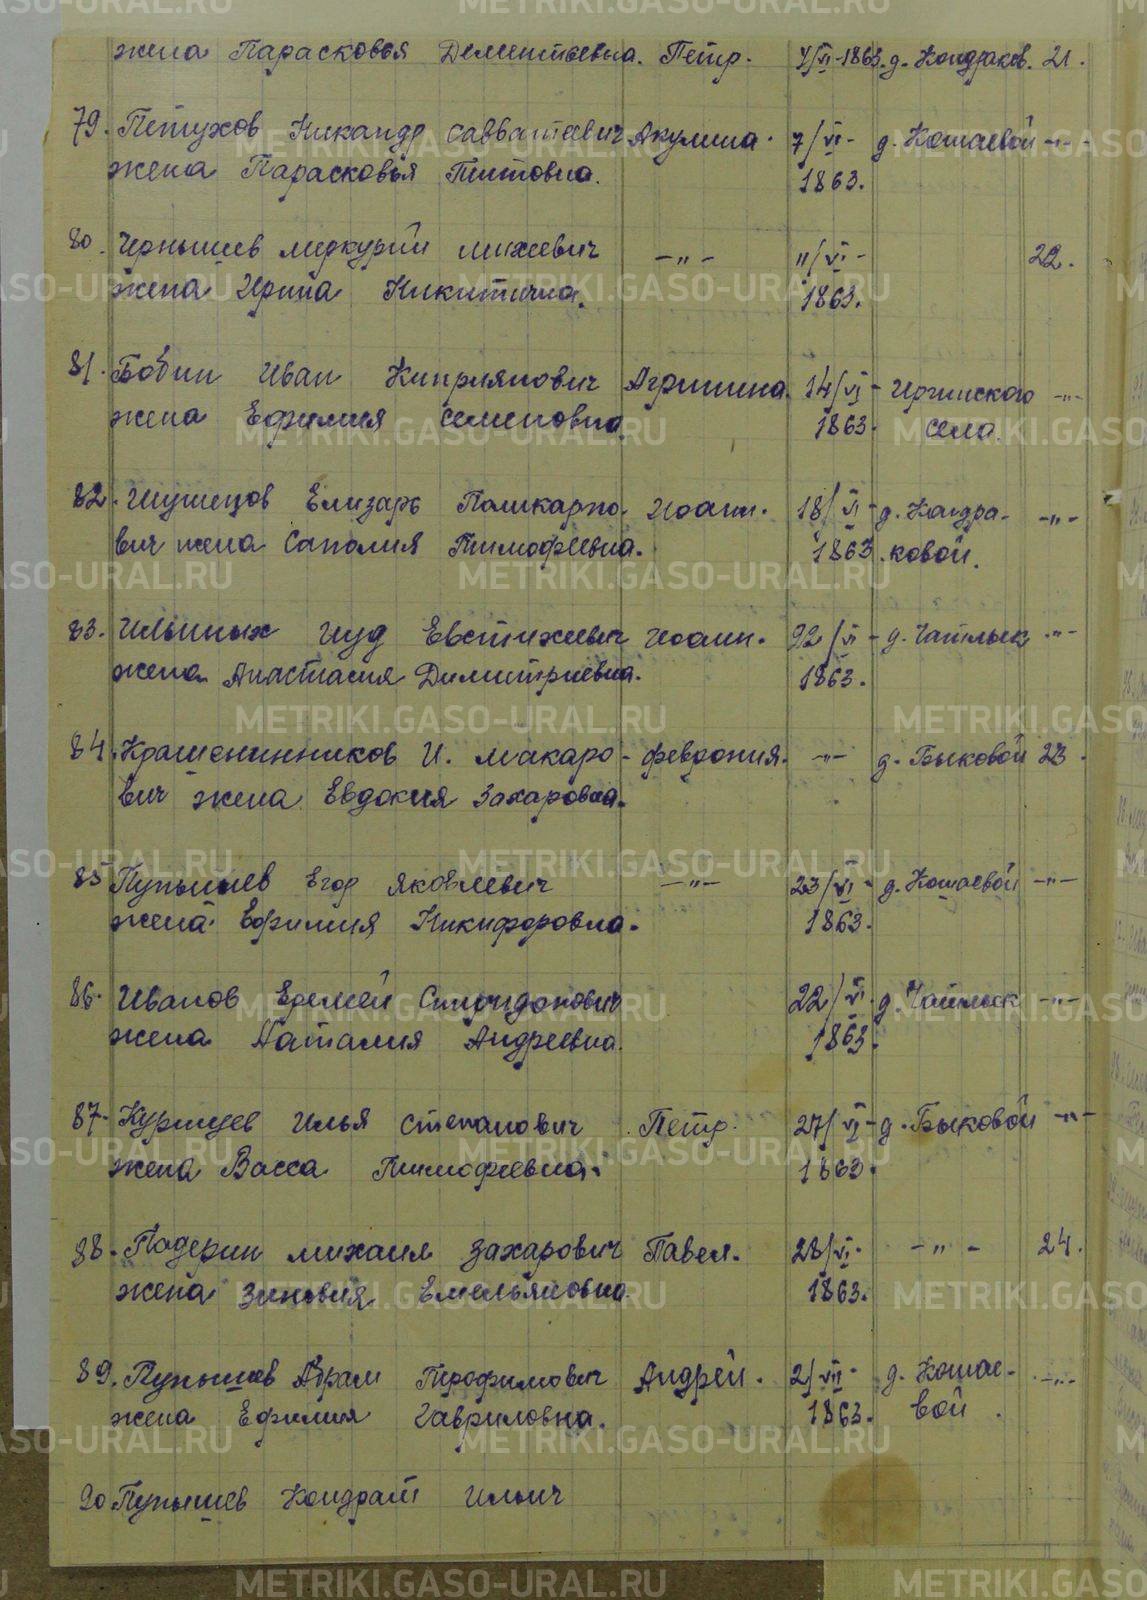 жена Парасковья Дементьевна. Петр. 7/VI-1863. д. Кондраков. 21.
79. Петухов Никандр Савватеевич Акулина. 7/VI- д. Кошаевой -"-
жена Парасковья Титовна. 1863.
80. Чернышев Меркурий Михеевич -"- 11/VI- 22.
жена Ирина Никитична. 1863.
81. Бобин Иван Киприянович Агрипина. 14/VI- Иргинского -"-
жена Ефимия Семеновна. 1863. села.
82. Елизарь Поликарпо- Иоанн. 18/VI- д. Кондра- -"-
вич жена Соломия Тимофеевна. 1863. ковой.
83. Ильиных Иуд Евстихеевич Иоанн. 22/VI- д. Чатлык -"-
жена Анастасия Димитриевна. 1863.
84. Крашенинников И. Макаро- Февдония. -"- д. Быковой 23.
вич жена Евдокия Захаровна.
85 Пупышев Егор Яковлевич -"- 23/VI- д. Кошаевой -"-
жена Ефимия Никифоровна. 1863.
86. Иванов Еремей Спиридонович 22/VI. д. Чатлык -"-
жена Наталия Андреевна. 1863.
87. Курицев Илья Степанович Петр. 27/VI- д. Быковой -"-
жена Васса Тимофеевна. 1863.
88. Падерин Михаил Захарович Павел. 28/VI. -"- 24.
жена Зиновия Емельяновна 1863.
89. Пупышев Абрам Трофимович Андрей. 2/VII- д. Кошае- -"-
жена Ефимия Гавриловна. 1863. вой.
90. Пупышев Кондрат Ильич
METRIKI.GASO-URAL.RU